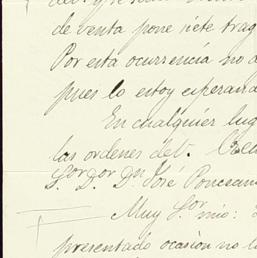 de venta pone siete trag
Por esta ocurrencia no d
pues lo estoy esperand
En cualquier lug
las ordenes de t.
S.r D.or D.n José Ponceano
Muy S.or mio:
presentado ocasion no l